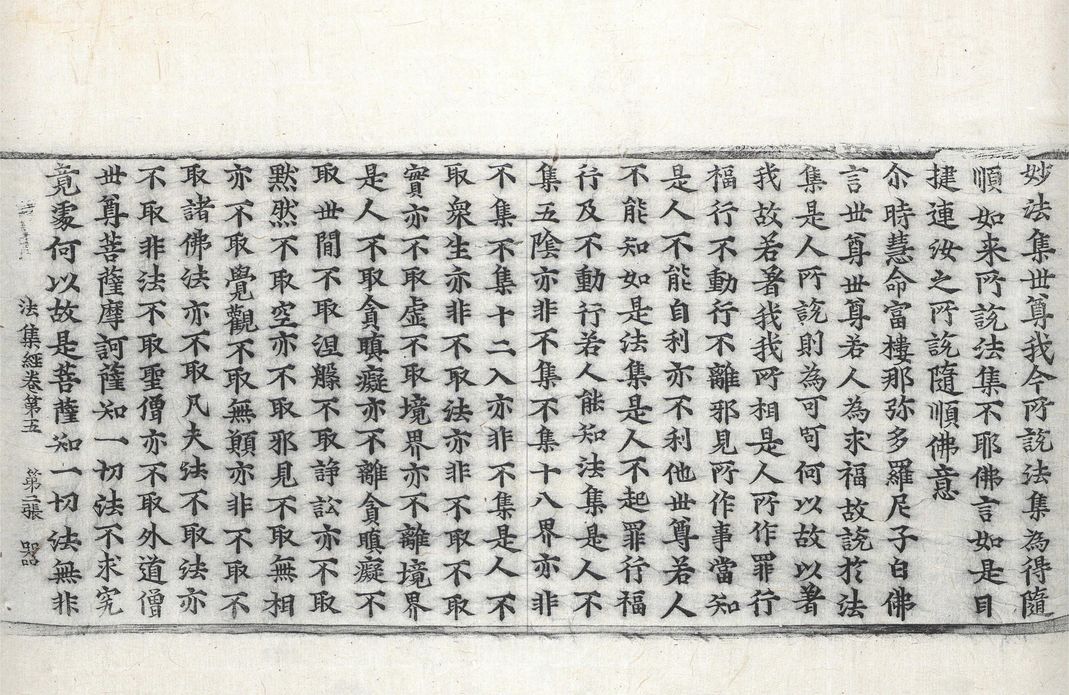 妙法集世尊我今所說法集為得隨
順如来所說法集不耶佛言如是目
揵連汝之所說隨順佛意
尒時慧命富樓那弥多羅尼子白佛
言世尊世尊若人為求福故說於法
集是人所說則為可呵何以故以著
我故若著我我所相是人所作罪行
福行不動行不離邪見所作事當知
是人不能自利亦不利他世尊若人
不能知如是法集是人不起罪行福
行及不動行若人能知法集是人不
集五陰亦非不集不集十八界亦非
不集不集十二入亦非不集是人不
取衆生亦非不取法亦非不取不取
實亦不取虛不取境界亦不離境界
是人不取貪瞋癡亦不離貪瞋癡不
取世間不取涅槃不取諍訟亦不取
黙然不取空亦不取邪見不取無相
亦不取覺觀不取無願亦非不取不
取諸佛法亦不取凡夫法不取法亦
不取非法不取聖僧亦不取外道僧
世尊菩薩摩訶薩知一切法不求究
竟處何以故是菩薩知一切法無非
法集經卷第五 第二張 器